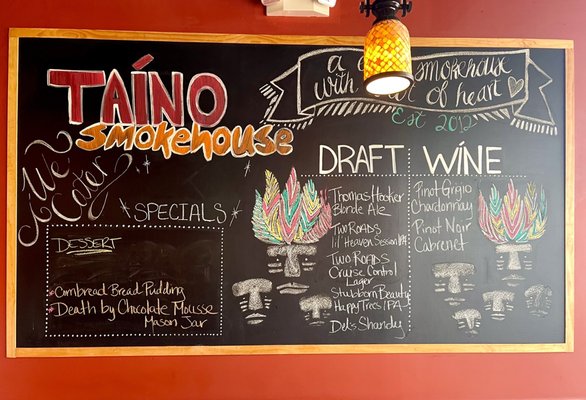 TAÍNO
smokehouse
We
Cater
a smokehouse
with of heart
Est 2012
SPECIALS
DESSERT
Cornbread Bread Pudding
Death by Chocolate Mousse
Mason Jar
DRAFT
Thomas Hooker
Blonde Ale
Two Roads
lil' Heaven Session IPA
Two Roads
Cruise Control
Lager
Stubborn Beauty
Happy Trees IPA
Del's Shandy
WÍNE
Pinot Grigio
Chardonnay
Pinot Noir
Cabrenet